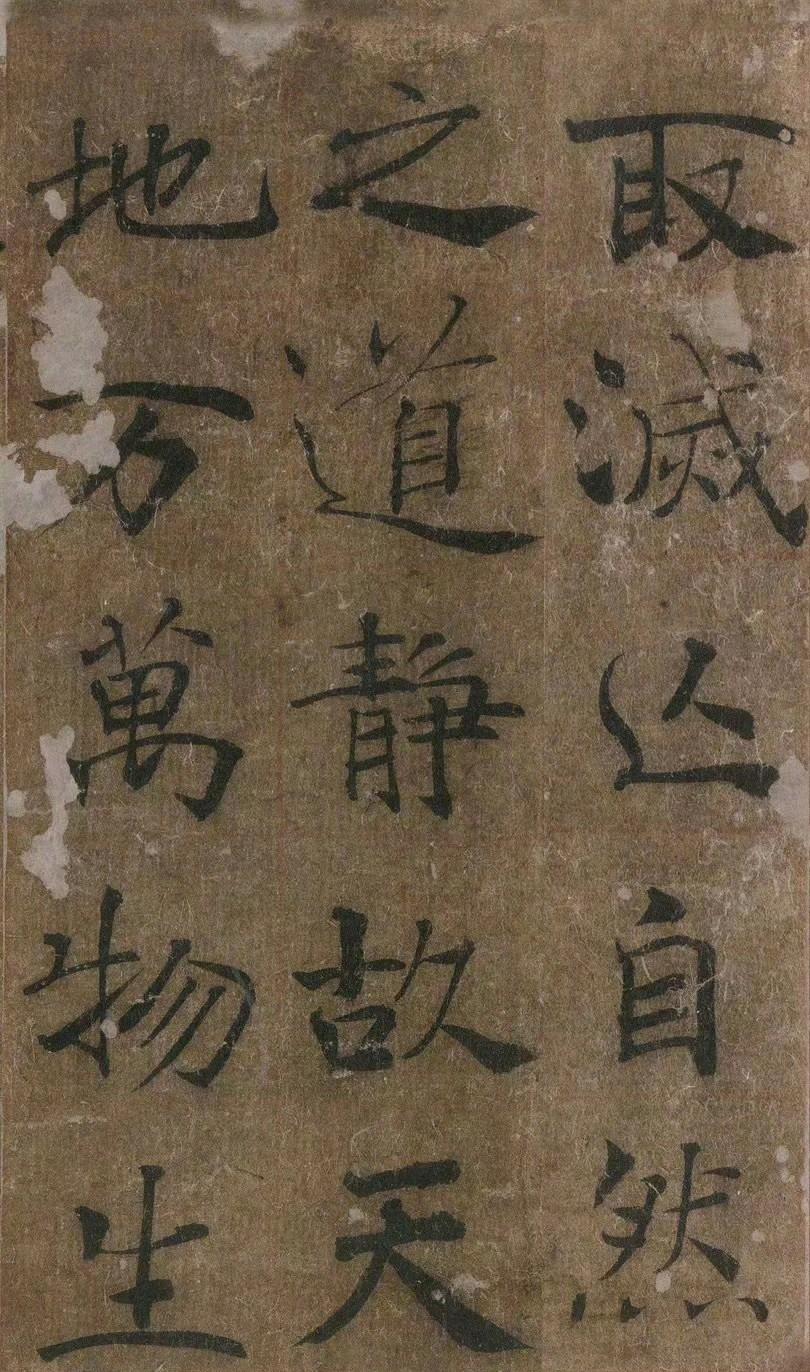 取滅亾自然
之道靜故天
地万萬物生